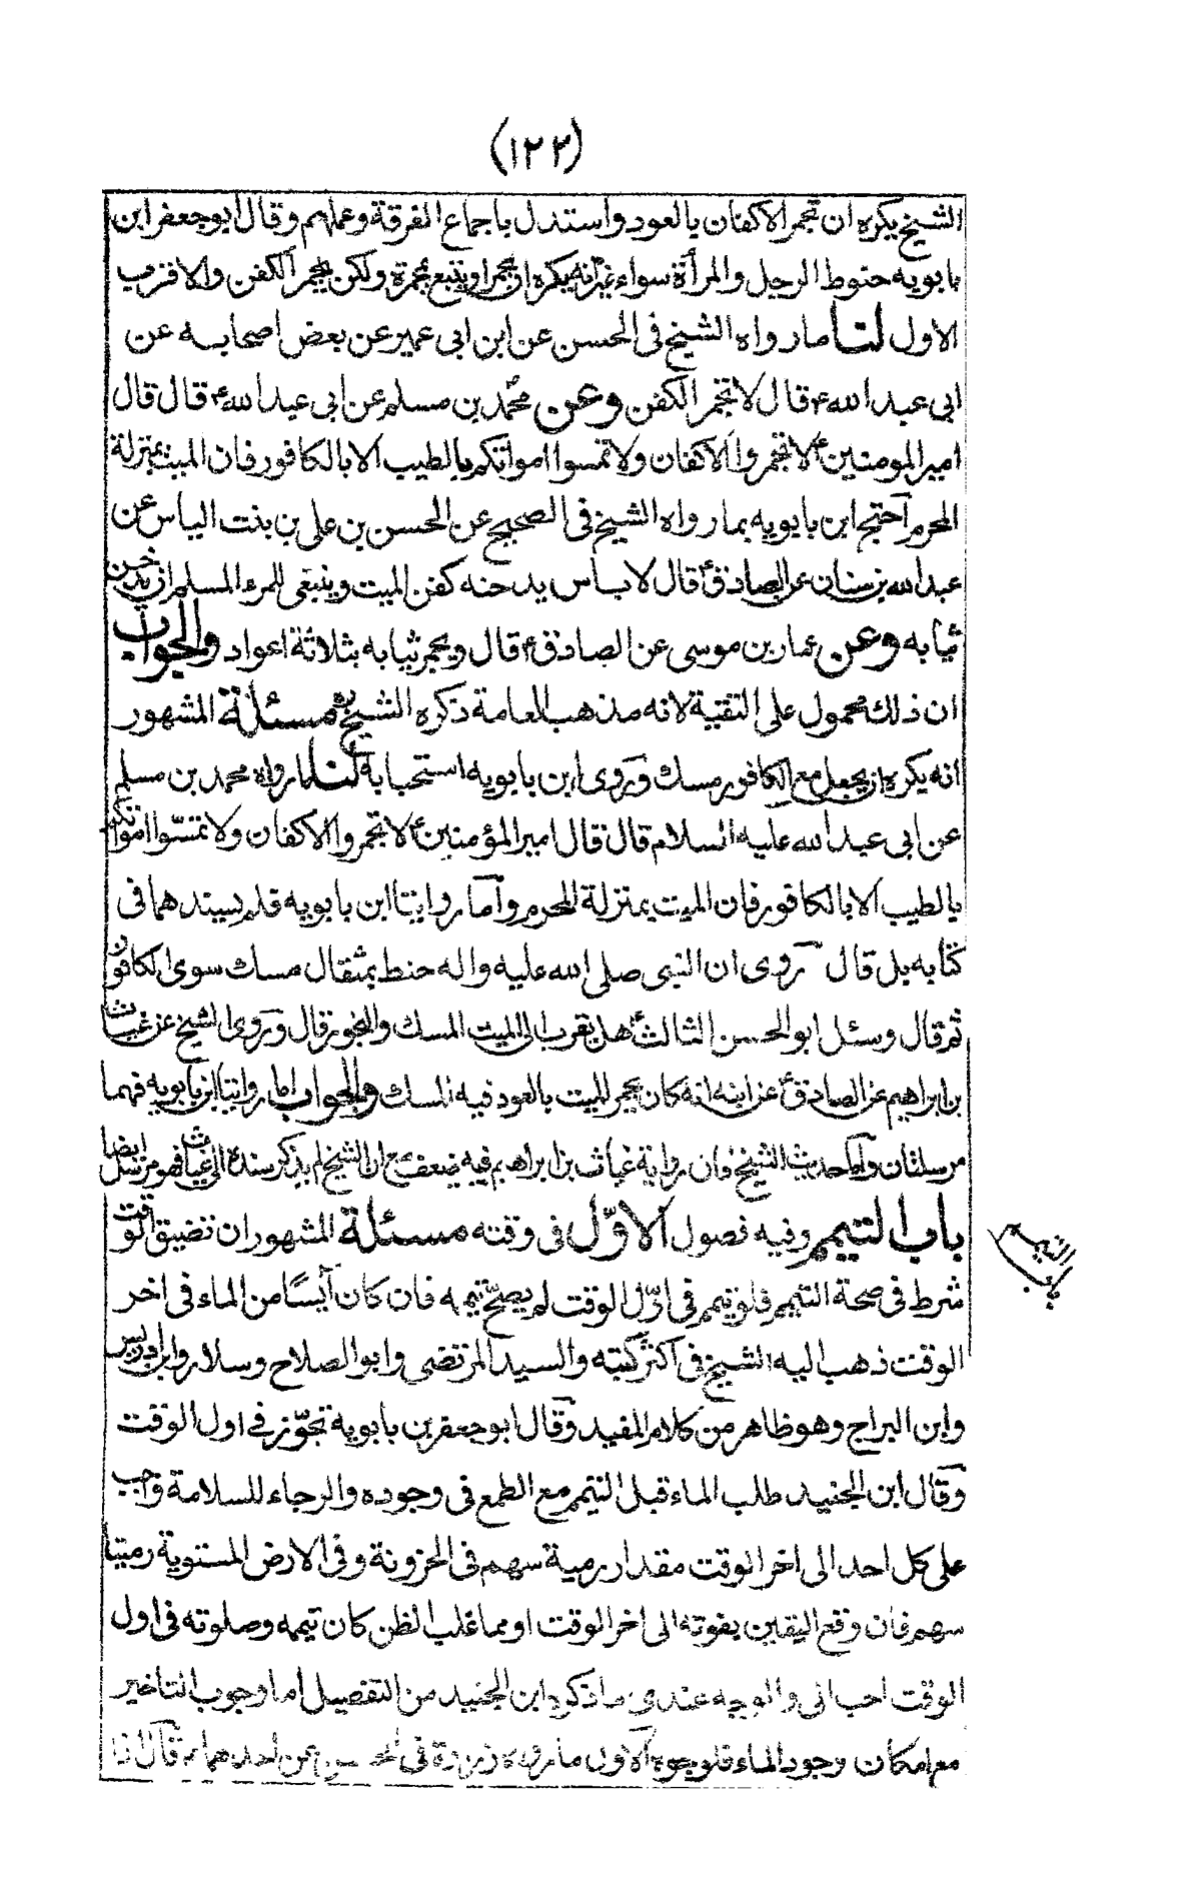 (١٢٢)
الشيخ يكره ان تجمر الاكفان بالعود واستدل باجماع الفرقة وعملهم وقال ابو جعفر ابن
بابويه حنوط الرجل والمرأة سواء غير انه يكره ان يجمر او يتبع بمجمرة ولكن يجمر الكفن والاقرب
الاول لنا ما رواه الشيخ فى الحسن عن ابن ابى عمير عن بعض اصحابه عن
ابى عبد الله ع قال لا تجمر الكفن وعن محمد بن مسلم عن ابى عبد الله ع قال قال
امير المومنين ع لا تجمروا الاكفان ولا تمسوا امواتكم بالطيب الا بالكافور فان الميت بمنزلة
المحرم احتج ابن بابويه بما رواه الشيخ فى الصحيح عن الحسن بن على بن بنت الياس عن
عبد الله بن سنان عن الصادق ع قال لا باس بدخنه كفن الميت وينبغى للمرء المسلم ان يدخن
ثيابه وعن عمار بن موسى عن الصادق ع قال ويجمر ثيابه بثلاثة اعواد والجواب
ان ذلك محمول على التقية لانه مذهب العامة ذكره الشيخ ره مسئلة المشهور
انه يكره ان يجعل مع الكافور مسك وروى ابن بابويه استحبابه لنا ما رواه محمد بن مسلم
عن ابى عبد الله عليه السلام قال قال امير المؤمنين ع لا تجمروا الاكفان ولا تمسّوا امواتكم
بالطيب الا بالكافور فان الميت بمنزلة المحرم وأما روايتا ابن بابويه فلم يسندهما فى
كتابه بل قال روى ان النبى صلى الله عليه واله حنط بمثقال مسك سوى الكافور
ثم قال وسئل ابو الحسن الثالث ع هل يقرب الى الميت المسك والبخور قال وروى الشيخ عن غياث
بن ابراهيم عن الصادق ع عن ابيه انه كان يجمر الميت بالعود فيه المسك والجواب اما روايتا ابن بابويه فهما
مرسلتان واما حديث الشيخ فان رواية غياث بن ابراهيم فيه ضعف مع ان الشيخ لم يذكر سنده الى غياث فهو مرسل ايضا
باب التيمم وفيه فصول الاوّل فى وقته مسئلة المشهور ان تضيق الوقت
شرط فى صحة التيمم فلو تيمم فى اوّل الوقت لم يصحّ تيممه فان كان آيسًا من الماء فى اخر
الوقت ذهب اليه الشيخ فى اكثر كتبه والسيد المرتضى وابو الصلاح وسلار وابن ادريس
وابن البراج وهو ظاهر من كلام المفيد وقال ابو جعفر بن بابويه تجوّز فى اول الوقت
وقال ابن الجنيد طلب الماء قبل التيمم مع الطمع فى وجوده والرجاء للسلامة واجب
على كل احد الى اخر الوقت مقدار رمية سهم فى الحزونة وفى الارض المستوية رميتا
سهم فان وقع اليقين بفوته الى اخر الوقت او مما غلب الظن كان تيممه وصلوته فى اول
الوقت احب الى والوجه عندى ما ذكره ابن الجنيد من التفصيل اما وجوب التاخير
مع امكان وجود الماء فلوجوه الاول ما رواه زرارة فى الحسن عن احدهما ع قال اذا
باب التيمم